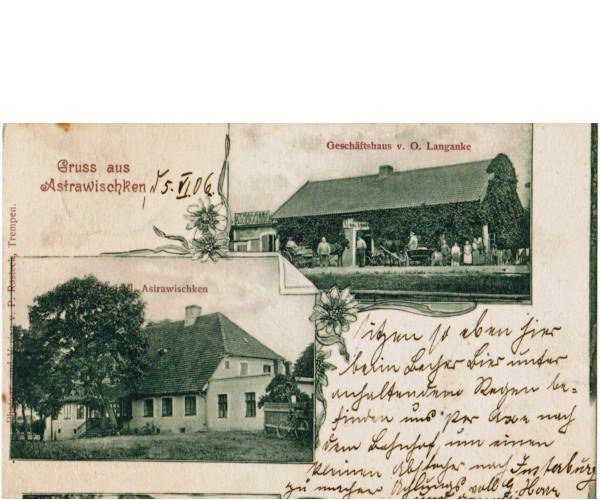 Gruss aus
Astrawischken
d 5. VI 06.
Geschäftshaus v. O. Langanke
Astrawischken
Trempen.
Sitzen so eben hier
beim Becher Bier unter
anhaltendem Regen be=
finden uns per Axe nach
dem Bahnhof, um einen
kleinen Abstecher nach Insterburg
zu machen